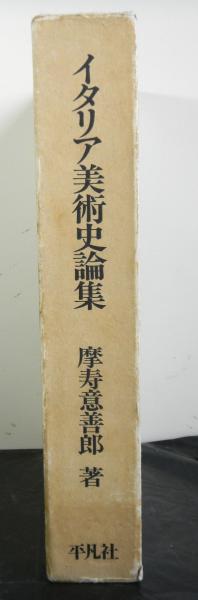 イタリア美術史論集
摩寿意善郎 著
平凡社